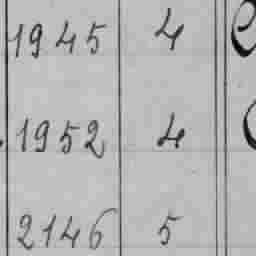 1945 4
1952 4
2146 5